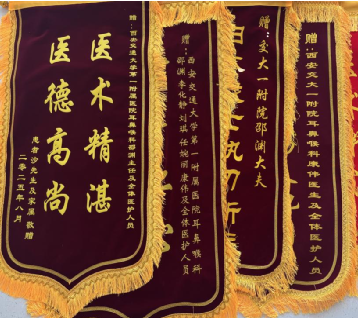 赠：西安交通大学第一附属医院耳鼻喉科邵渊主任及全体医护人员
医术精湛
医德高尚
患者沙先生及家属敬赠
二〇二五年八月
赠：西安交通大学第一附属医院耳鼻喉科
邵渊李化静刘琪任婉丽康伟及全体医护人员
赠：交大一附院邵渊大夫
赠：西安交大一附院耳鼻喉科康伟医生及全体医护人员